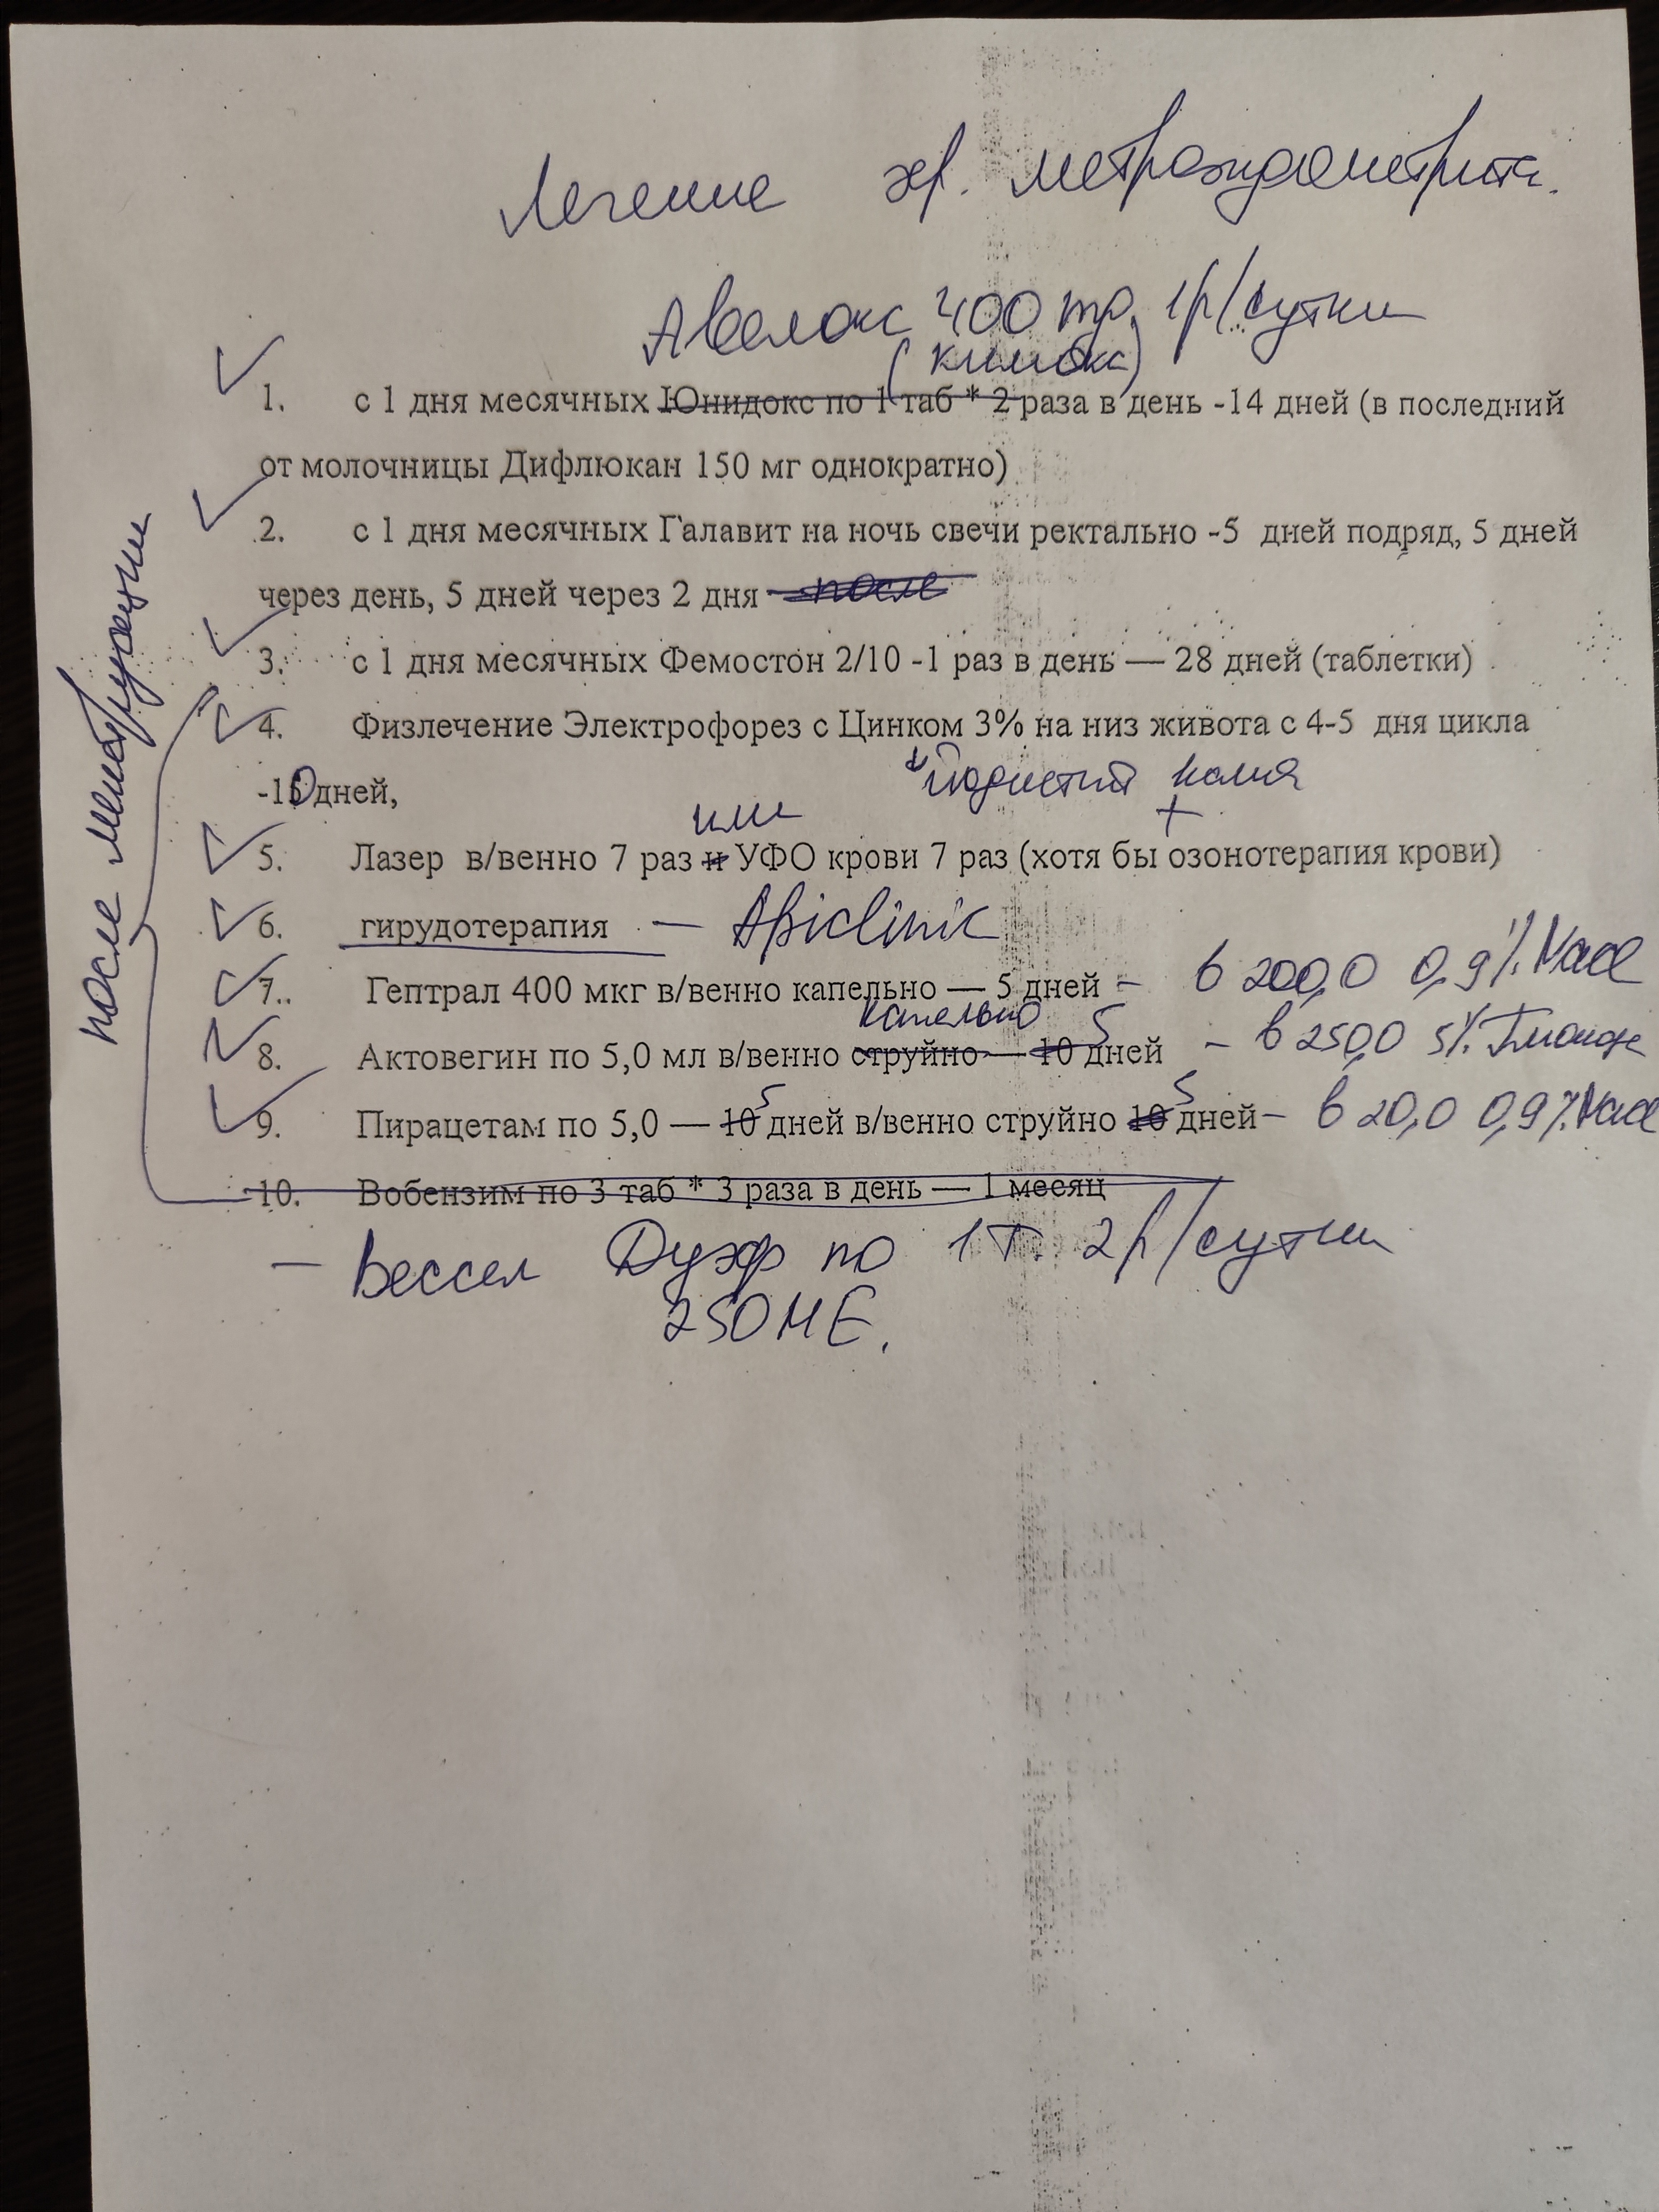 Лечение хр. метроэндометрита.
Авелокс 400 mg 1р/сутки
(кимокс)
1. с 1 дня месячных Юнидокс по 1 таб * 2 раза в день -14 дней (в последний
от молочницы Дифлюкан 150 мг однократно)
2. с 1 дня месячных Галавит на ночь свечи ректально -5 дней подряд, 5 дней
через день, 5 дней через 2 дня после
3. с 1 дня месячных Фемостон 2/10 -1 раз в день — 28 дней (таблетки)
4. Физлечение Электрофорез с Цинком 3% на низ живота с 4-5 дня цикла
-10 дней, йодистый калия
или +
5. Лазер в/венно 7 раз и УФО крови 7 раз (хотя бы озонотерапия крови)
6. гирудотерапия — Apiclinic
7.. Гептрал 400 мкг в/венно капельно — 5 дней - в 200,0 0,9% NaCl
капельно 5
8. Актовегин по 5,0 мл в/венно струйно — 10 дней - в 250,0 5% Глюкозе
5 5
9. Пирацетам по 5,0 — 10 дней в/венно струйно 10 дней - в 20,0 0,9% NaCl
10. Вобензим по 3 таб * 3 раза в день — 1 месяц
— Вессел Дуэф по 1т. 2р/сутки
250МЕ.
после менструации